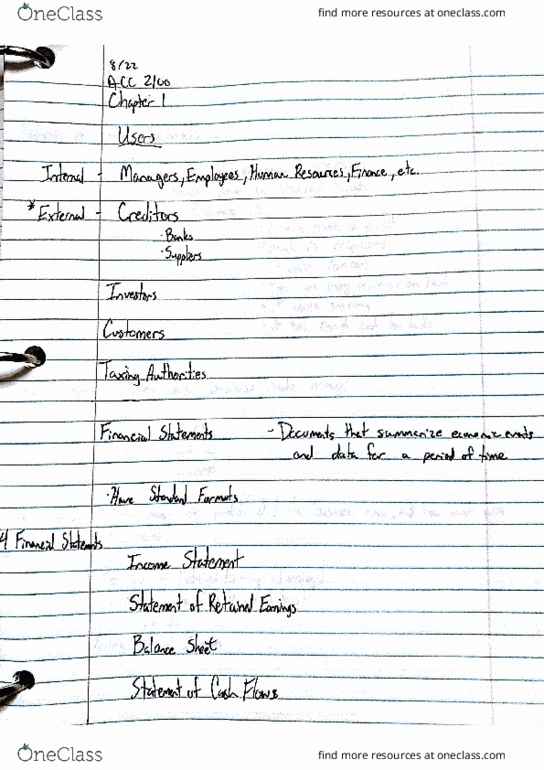 OneClass
find more resources at oneclass.com
8/22
ACC 2100
Chapter 1
Users
Internal - Managers, Employees, Human Resources, Finance, etc.
*External - Creditors
· Banks
· Suppliers
Investors
Customers
Taxing Authorities
Financial Statements - Documents that summarize economic events
and data for a period of time
· Have Standard Formats
4 Financial Statements
Income Statement
Statement of Retained Earnings
Balance Sheet
Statement of Cash Flows
OneClass
find more resources at oneclass.com